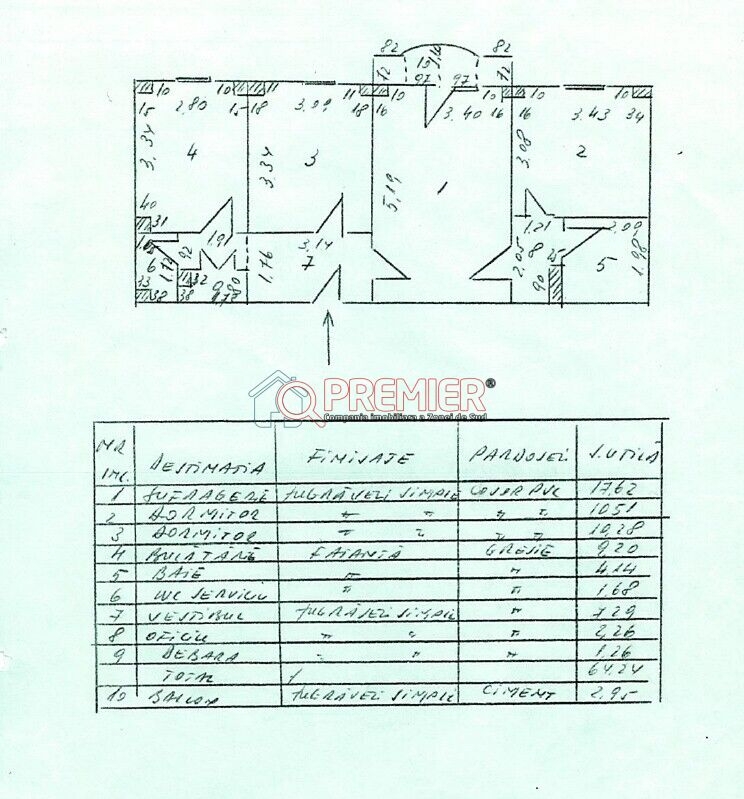 82 10 1,10 82
72 97 97 72
10 10 11 11 10 10 10
15 2,80 15 18 3,09 18 16 3,40 16 16 3,43 34
3,34 3,34 5,19 3,08
4 3 1 2
40 31
1,91 3,14 1,21 2,09
92 1,76 7 2,05 8 25 5 1,98
6 1,72 32 9 80 90
33 38 38 1,78
PREMIER®
Compania imobiliara a Zonei de Sud
NR INC. DESTINATIA FINISAJE PARDOSELI S.UTILĂ
1 SUFRAGERIE ZUGRĂVELI SIMPLE COVOR PVC 17,62
2 DORMITOR " " " " 10,51
3 DORMITOR " " " " 10,28
4 BUCĂTĂRIE FAIANȚĂ GRESIE 9,20
5 BAIE " " 4,14
6 WC SERVICIU " " 1,68
7 VESTIBUL ZUGRĂVELI SIMPLE " 7,29
8 OFICIU " " " 2,26
9 DEBARA " " " 1,26
TOTAL 64,24
10 BALCON ZUGRĂVELI SIMPLE CIMENT 2,95